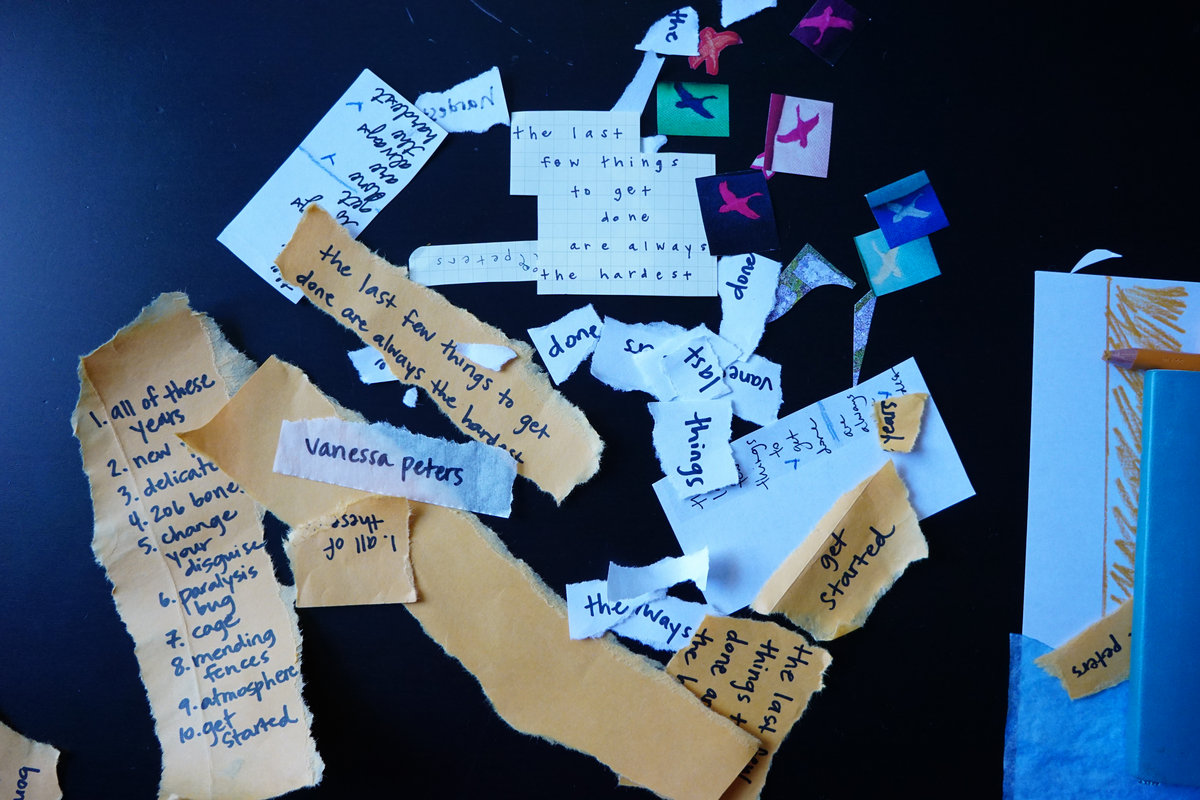 the
the last
few things
to get
done
are always
the hardest
get
done
are
always
the
hardest
peters
the last few things to get
done are always the hardest
done
done
last
vane
things
years
vanessa peters
1. all of these
years
2. new
3. delicate
4. 206 bones
5. change
your
disguise
6. paralysis
bug
7. cage
8. mending
fences
9. atmosphere
10. get
started
1. all of
these
things
to
get
done
are
always
get
started
the ways
the last
things t
done a
the h
peters
bon